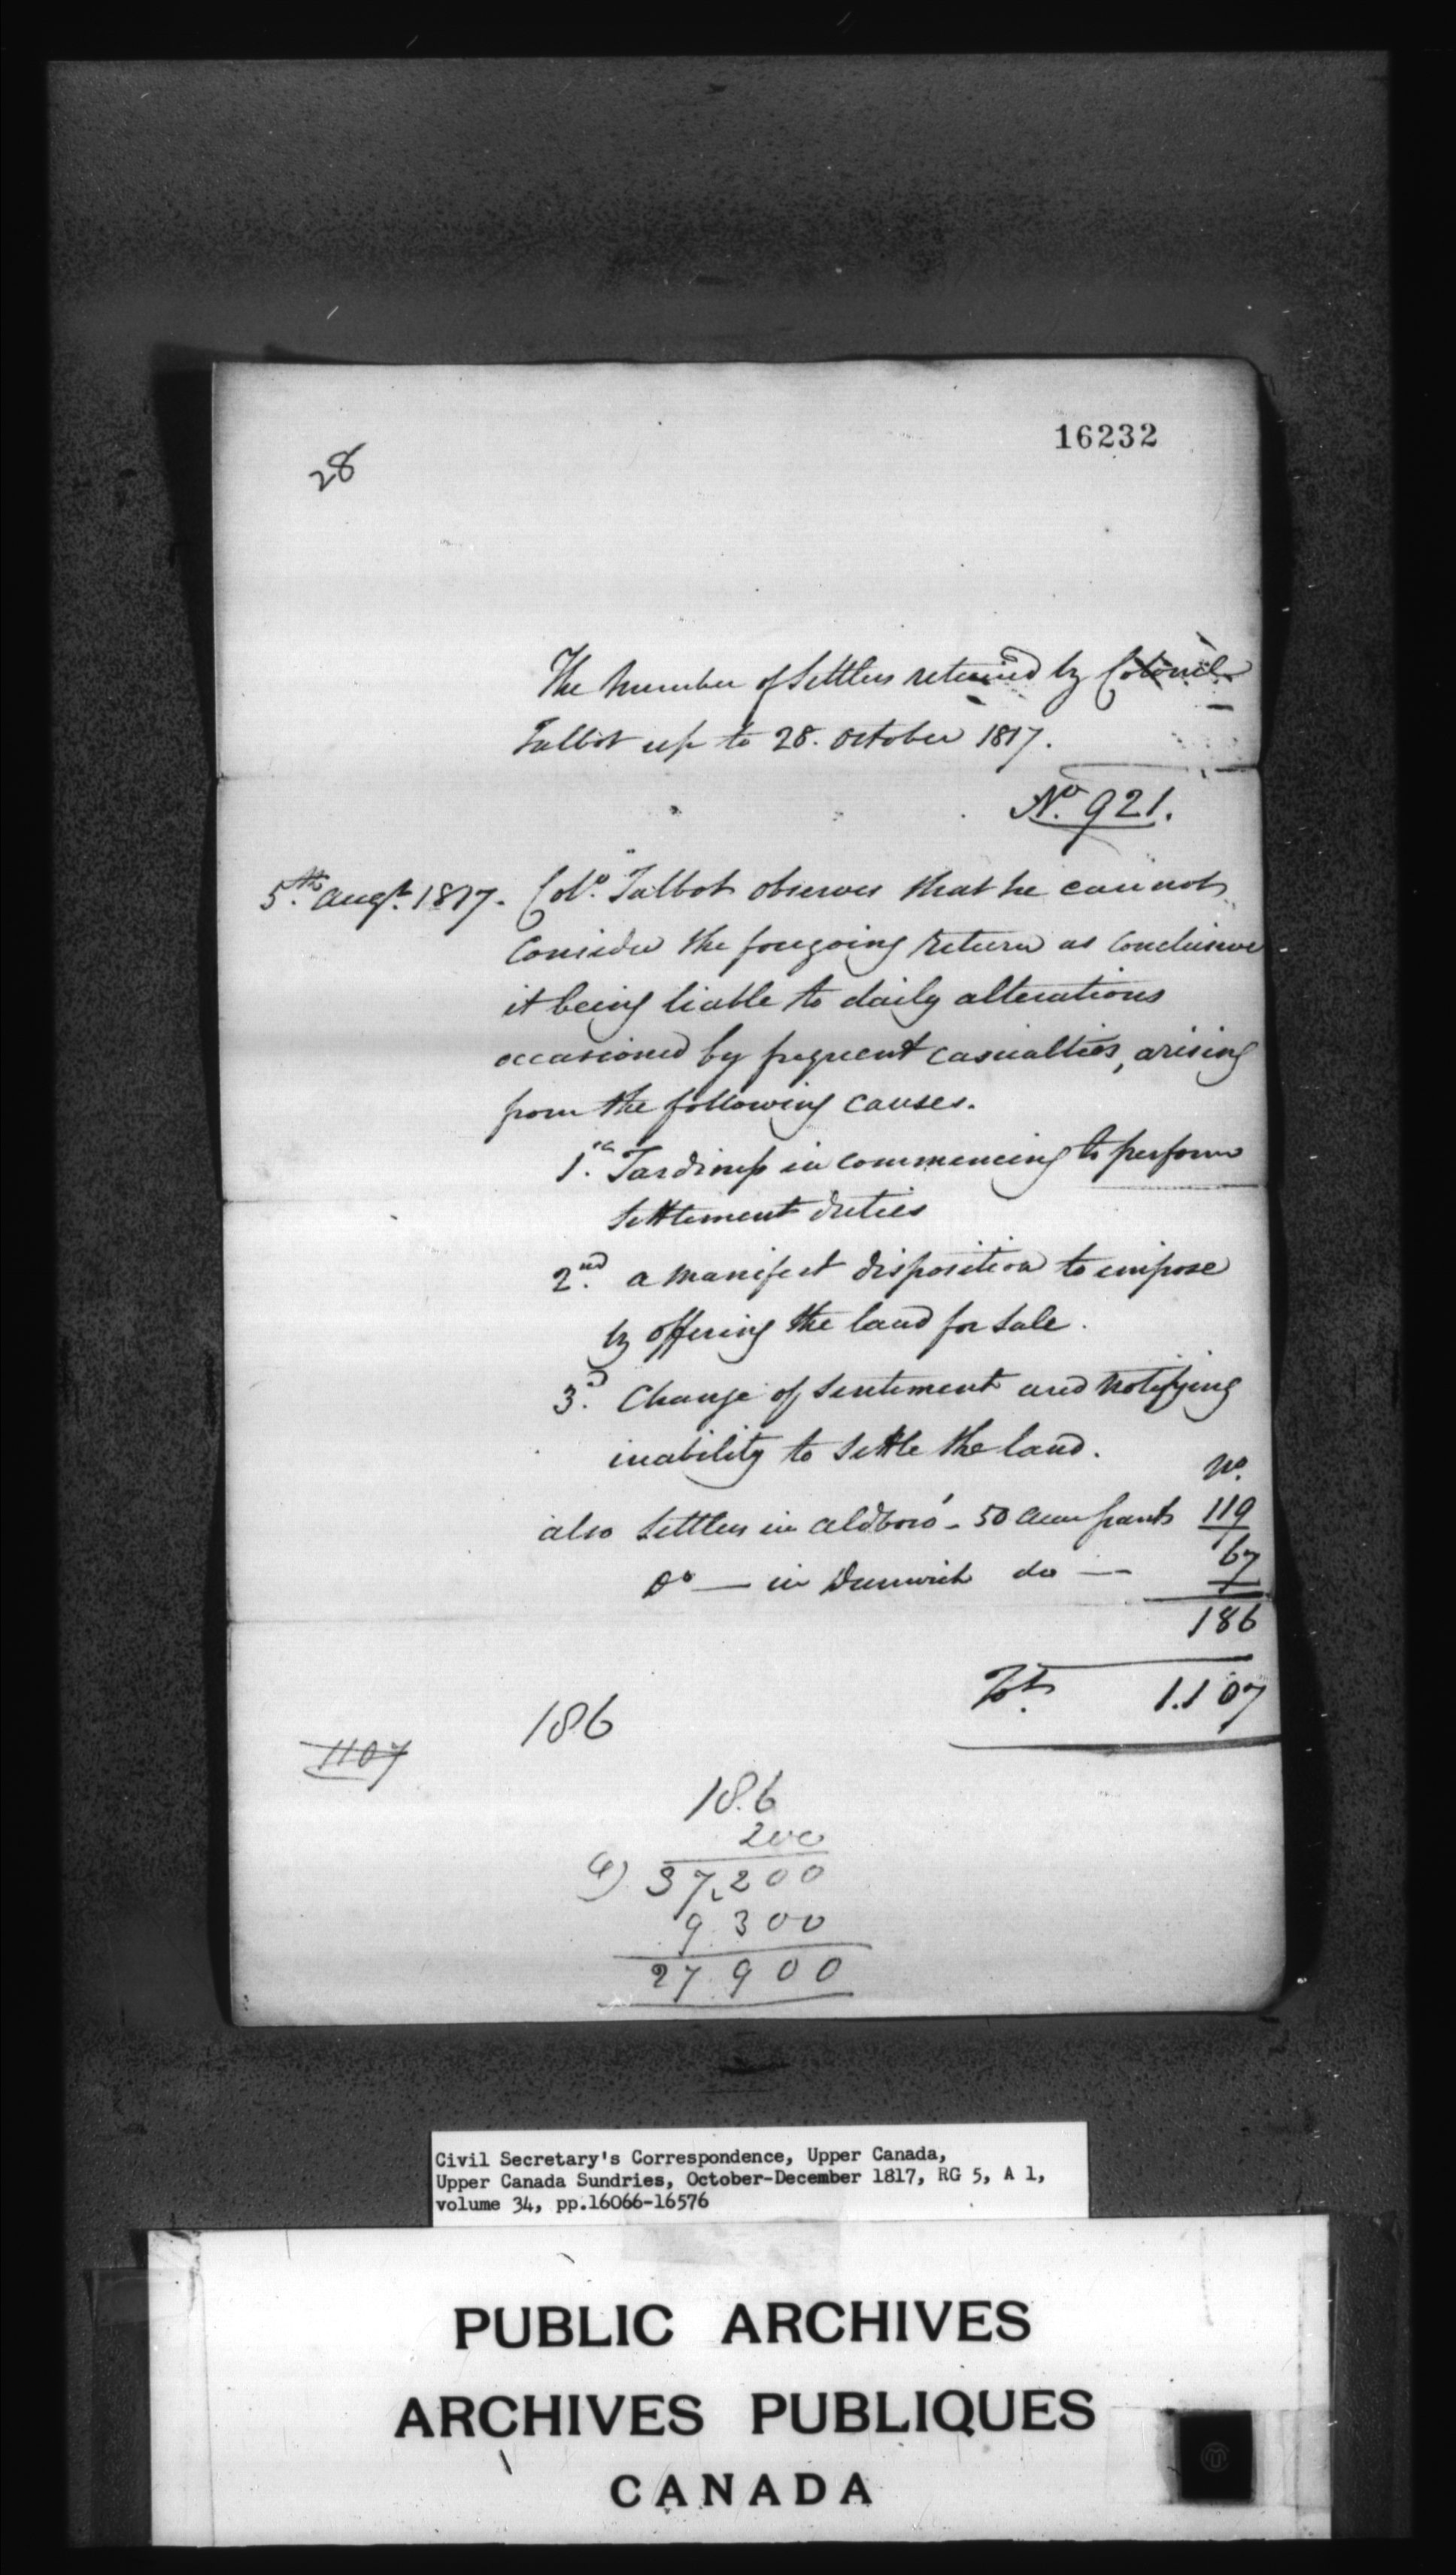 16232
28
The Number of Settlers returned by Colonel
Talbot up to 28. October 1817.
No. 921.
5.th Augt. 1817. Colo. Talbot observes that he cannot
Consider the foregoing return as Conclusive
it being liable to daily alterations
occasioned by frequent casualties, arising
from the following causes.
1. Tardiness in commencing to perform
Settlement duties
2.nd a manifest disposition to impose
by offering the land for Sale.
3.d Change of Sentiment and Notifying
inability to Settle the land.
No.
also Settlers in Aldboro' - 50 Acre grants 119
Do — in Dunwich do — 67
186
Tot. 1.107
186
1107
186
200
4) 37,200
9.300
27.900
Civil Secretary's Correspondence, Upper Canada,
Upper Canada Sundries, October-December 1817, RG 5, A 1,
volume 34, pp.16066-16576
PUBLIC ARCHIVES
ARCHIVES PUBLIQUES
CANADA